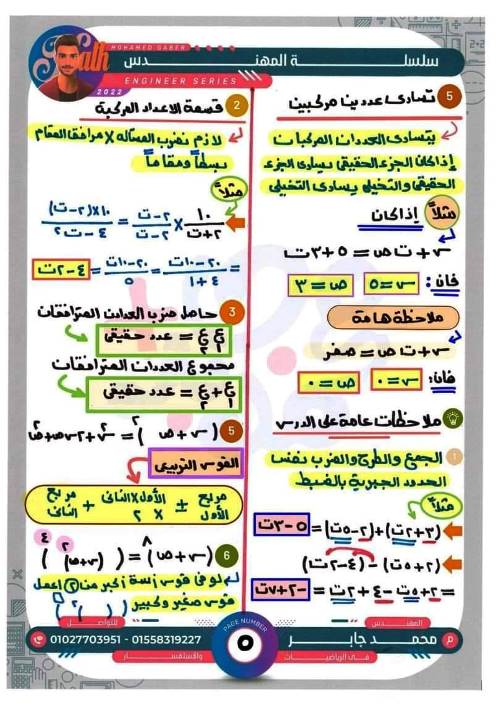 MOHAMED GABER
Math
2022
سلسلة المهندس
ENGINEER SERIES
5 تساوى عددين مركبين
يتساوى العددان المركبان
إذا كان الجزء الحقيقى يساوى الجزء
الحقيقى والتخيلى يساوى التخيلى
مثلاً إذا كان
س + ت ص = ٥ + ٣ ت
فان: س = ٥ ص = ٣
ملاحظة هامة
س + ت ص = صفر
فان: س = ٠ ص = ٠
ملاحظات عامة على الدرس
1 الجمع والطرح والضرب نفس
الحدود الجبرية بالضبط
مثلاً
(٣ + ٢ت) + (٢ - ٥ت) = ٥ - ٣ت
(٢ + ٥ت) - (٤ - ٢ت)
= ٢ + ٥ت - ٤ + ٢ت = -٢ + ٧ت
2 قسمة الاعداد المركبة
لازم نضرب المسألة × مرافق المقام
بسطاً ومقاماً
مثلاً
١٠/(٢ + ت) × (٢ - ت)/(٢ - ت) = ١٠ × (٢ - ت)/(٤ - ت٢)
= (٢٠ - ١٠ت)/(٤ + ١) = (٢٠ - ١٠ت)/٥ = ٤ - ٢ت
3 حاصل ضرب العددين المترافقان
ع١ ع٢ = عدد حقيقى
مجموع العددان المترافقات
ع١ + ع٢ = عدد حقيقى
5 (س + ص)٢ = س٢ + ٢س ص + ص٢
القوس التربيعى
مربع الأول ± الأول × الثانى × ٢ + مربع الثانى
6 (س + ص)٨ = ((س + ص)٢)٤
لو فى قوس أسة أكبر من ٢ اعمل
قوس صغير وكبير ( ( )٢ )
المهندس
محمد جابر
فى الرياضيات
PAGE NUMBER
٥
للتواصل
01027703951 - 01558319227
والإستفسار